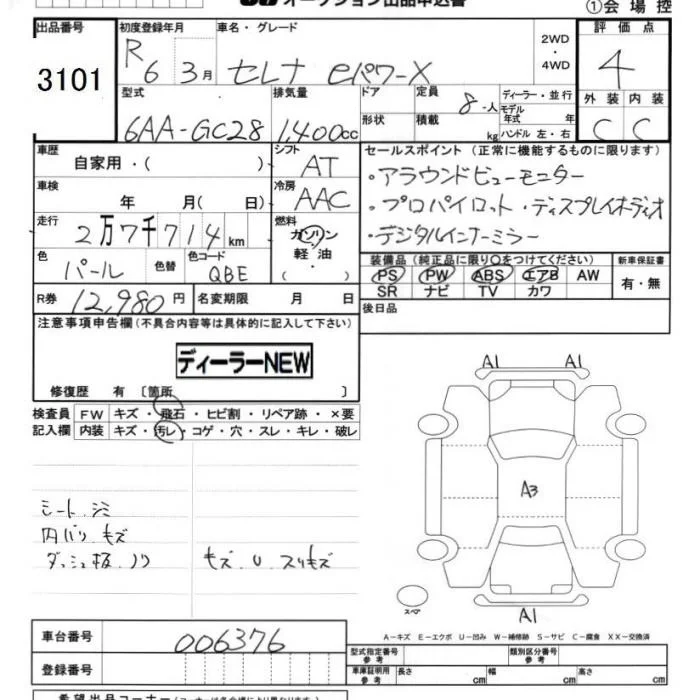 オークション出品申込書
①会場控
出品番号
3101
初度登録年月
R 6 3月
車名・グレード
セレナ eパワーX
2WD
・
4WD
評価点
4
外装 内装
C C
型式
6AA-GC28
排気量
1,400cc
ドア
形状
定員
8-人
積載 kg
ディーラー・並行
モデル
年式 年
ハンドル 左・右
車歴
自家用・( )
シフト
AT
車検
年 月( 日)
冷房
AAC
走行
2万7千714km
燃料
ガソリン
軽油
・( )
色
パール
色替
色コード
QBE
R券 12,980円
名変期限 月 日
セールスポイント (正常に機能するものに限ります)
・アラウンドビューモニター
・プロパイロット・ディスプレイオーディオ
・デジタルインナーミラー
装備品(純正品に限り○をつけてください)
PS PW ABS エアB AW
SR ナビ TV カワ
新車保証書
有・無
後日品
注意事項申告欄(不具合内容等は具体的に記入して下さい)
ディーラーNEW
修復歴 有 〔箇所 〕
検査員
記入欄
FW キズ・飛石・ヒビ割・リペア跡・×要
内装 キズ・汚レ・コゲ・穴・スレ・キレ・破レ
シート.シミ
内バリ.キズ
ダッシュ板.ノリ
キズ.U.スリキズ
A1 A1
A3
A1
スペア
A-キズ E-エクボ U-凹み W-補修跡 S-サビ C-腐食 XX-交換済
車台番号
006376
登録番号
型式指定番号
参考
類別区分番号
参考
車庫証明用
参考
長さ cm
幅 cm
高さ cm
希望出品コーナー